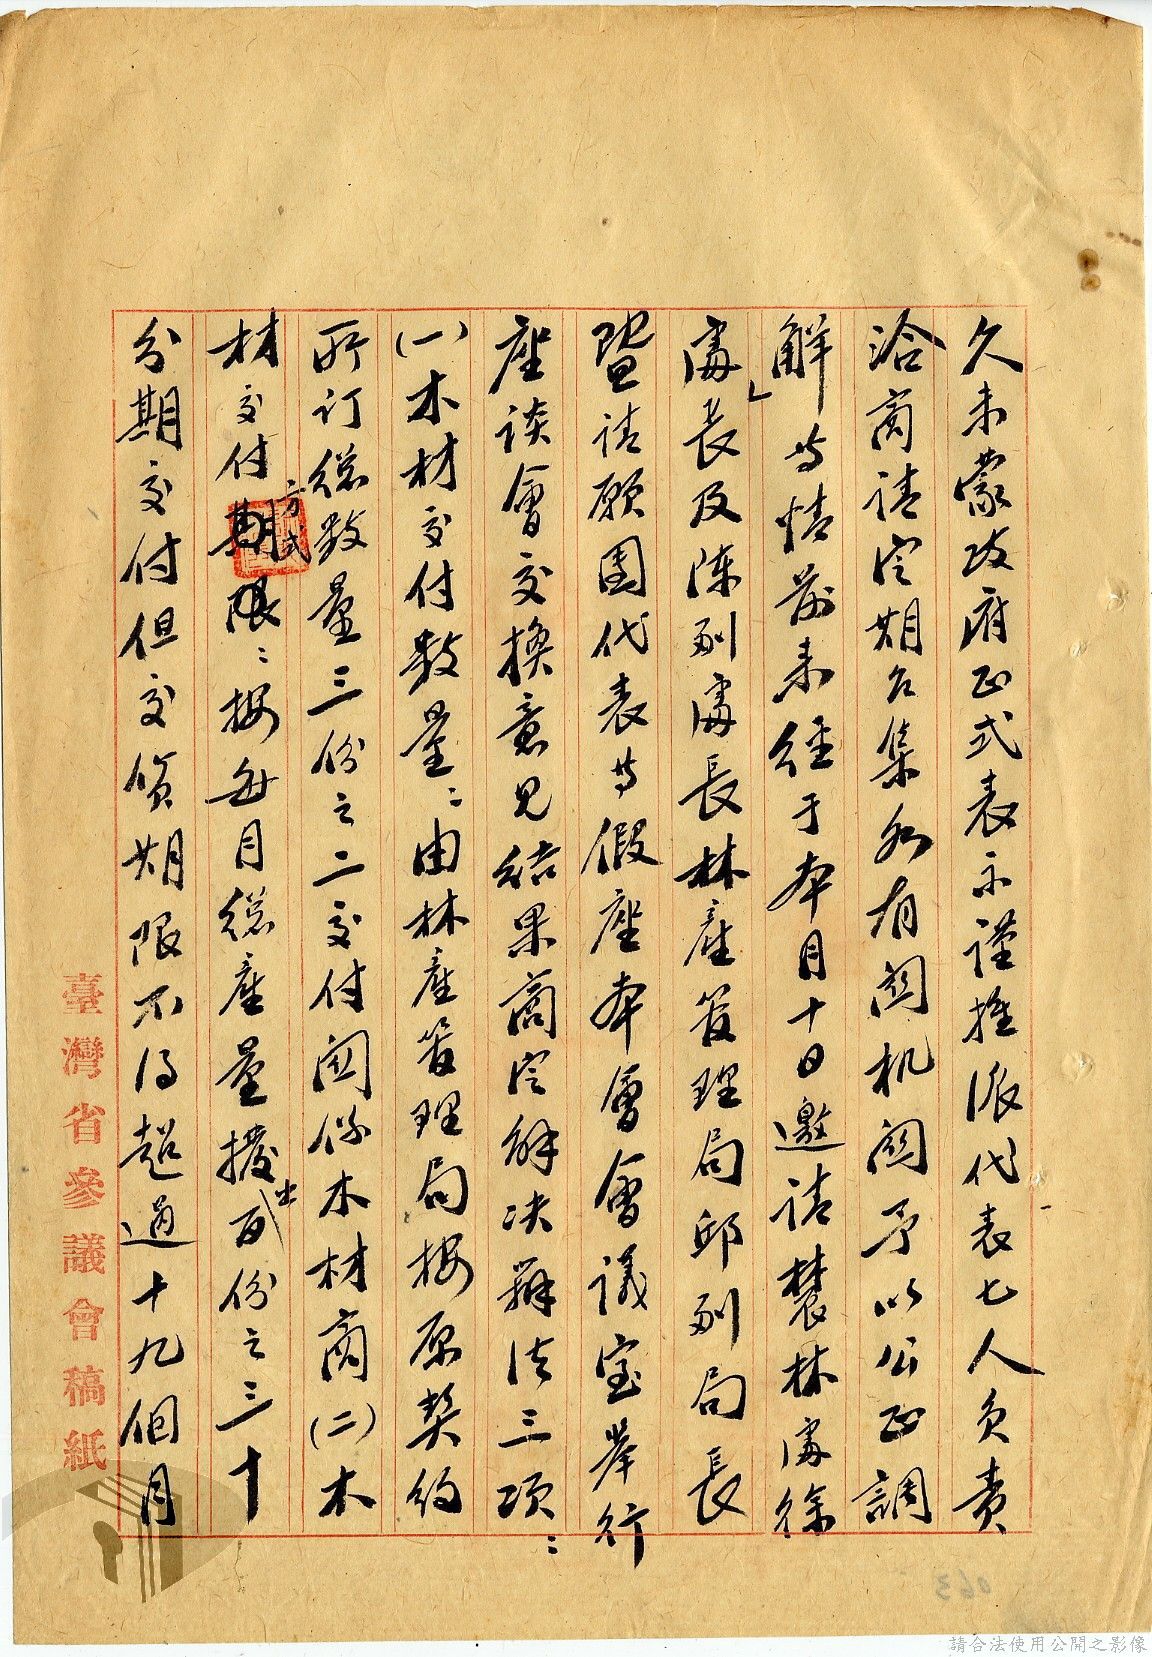 久未蒙政府正式表示謹推派代表七人負責
洽商請定期召集各有関机関予以公正調
解」等情前来經于本月十日邀請農林處徐
處長及陳副處長林產管理局邱副局長
暨請願團代表等假座本會會議室举行
座谈會交換意見结果商定解决辦法三項：
(一)木材交付數量：由林產管理局按原契約
所订總數量三份之二交付関係木材商(二)木
材交付期限方式：按每月總產量撥出百份之三十
分期交付但交貨期限不得超過十九個月
臺灣省參議會稿紙
063
請合法使用公開之影像